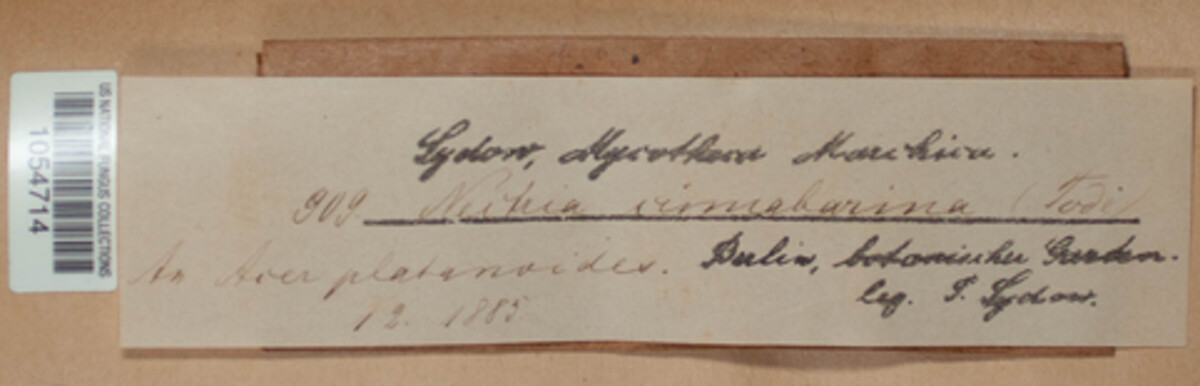 Sydow, Mycotheca Marchica.
909 Nectria cinnabarina (Tode)
An Acer platanoides.
12. 1885
Berlin, botanischer Garten.
leg. P. Sydow.
US NATIONAL FUNGUS COLLECTIONS
1054714